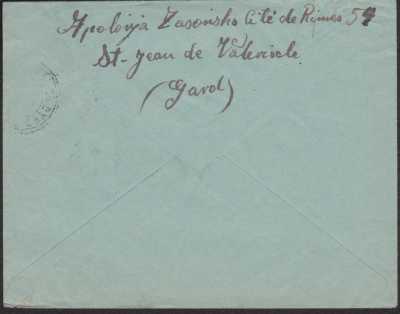 Apolonja Zasonsko Cité de Rimes 54
St-Jean de Valeriscle
(Gard)